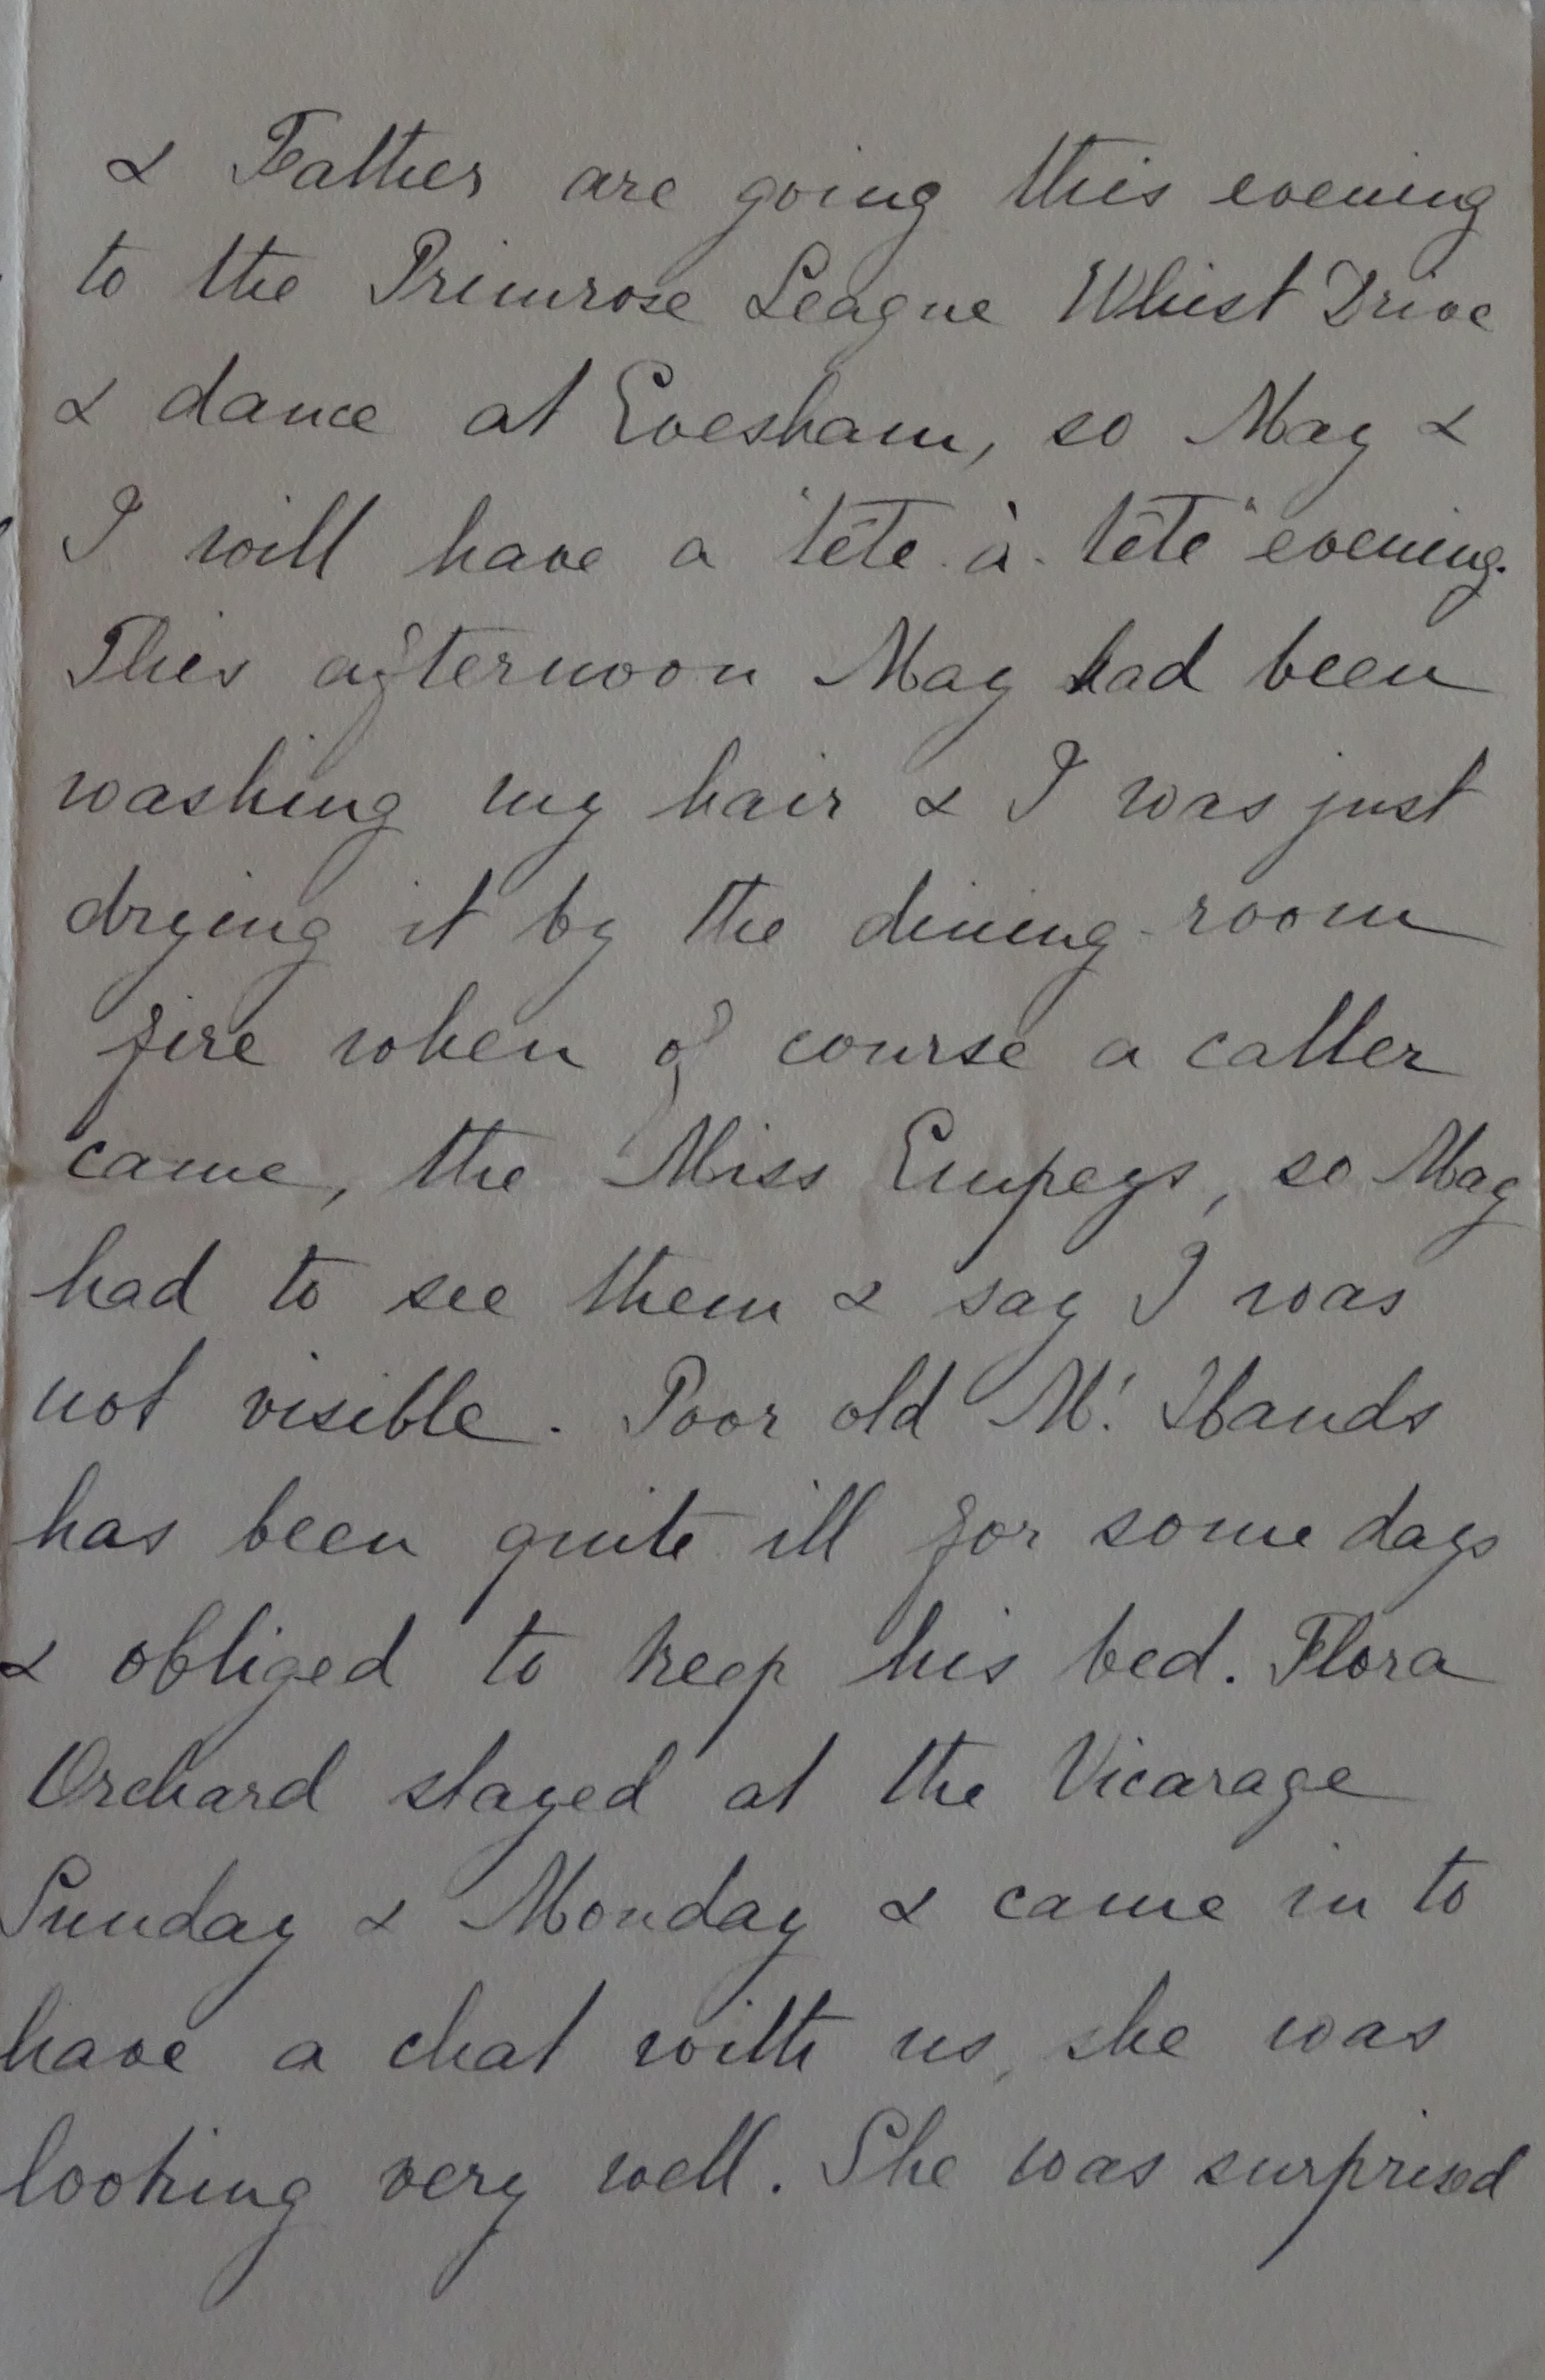 & Father are going this evening
to the Primrose League Whist Drive
& dance at Evesham, so May &
I will have a "tête-à-tête" evening.
This afternoon May had been
washing my hair & I was just
drying it by the dining-room
fire when of course a caller
came, the Miss Empeys, so May
had to see them & say I was
not visible. Poor old Mr. Hands
has been quite ill for some days
& obliged to keep his bed. Flora
Orchard stayed at the Vicarage
Sunday & Monday & came in to
have a chat with us, she was
looking very well. She was surprised